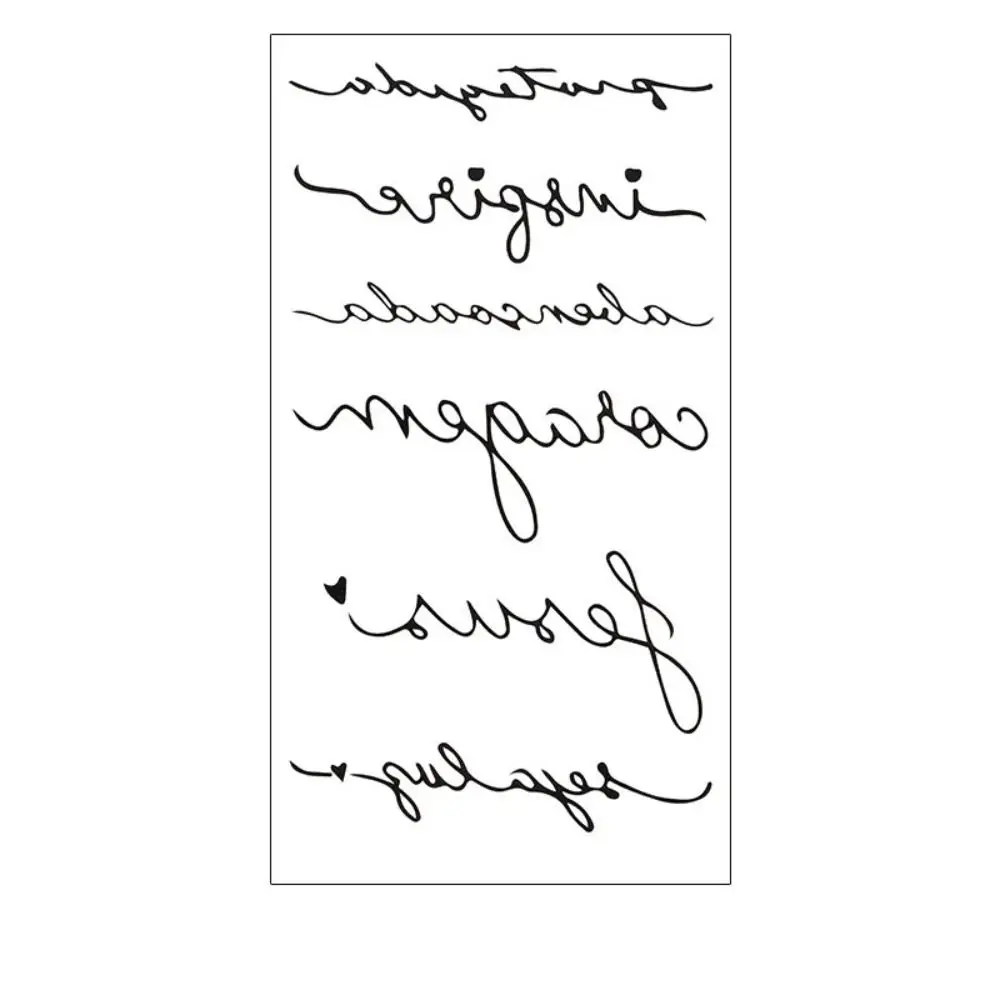 protegida
inspire
abencoada
coragem
Jesus
seja luz